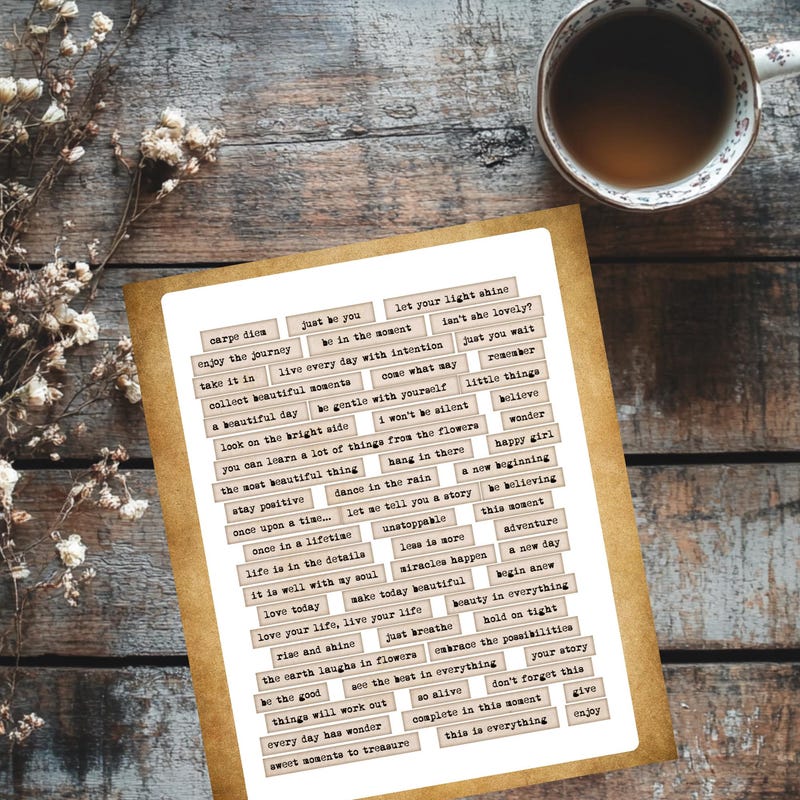 carpe diem just be you let your light shine
enjoy the journey be in the moment isn't she lovely?
take it in live every day with intention just you wait
collect beautiful moments come what may remember
a beautiful day be gentle with yourself little things
look on the bright side i won't be silent believe
you can learn a lot of things from the flowers wonder
the most beautiful thing hang in there happy girl
stay positive dance in the rain a new beginning
once upon a time... let me tell you a story be believing
once in a lifetime unstoppable this moment
life is in the details less is more adventure
it is well with my soul miracles happen a new day
love today make today beautiful begin anew
love your life, live your life beauty in everything
rise and shine just breathe hold on tight
the earth laughs in flowers embrace the possibilities
be the good see the best in everything your story
things will work out so alive don't forget this
every day has wonder complete in this moment give
sweet moments to treasure this is everything enjoy